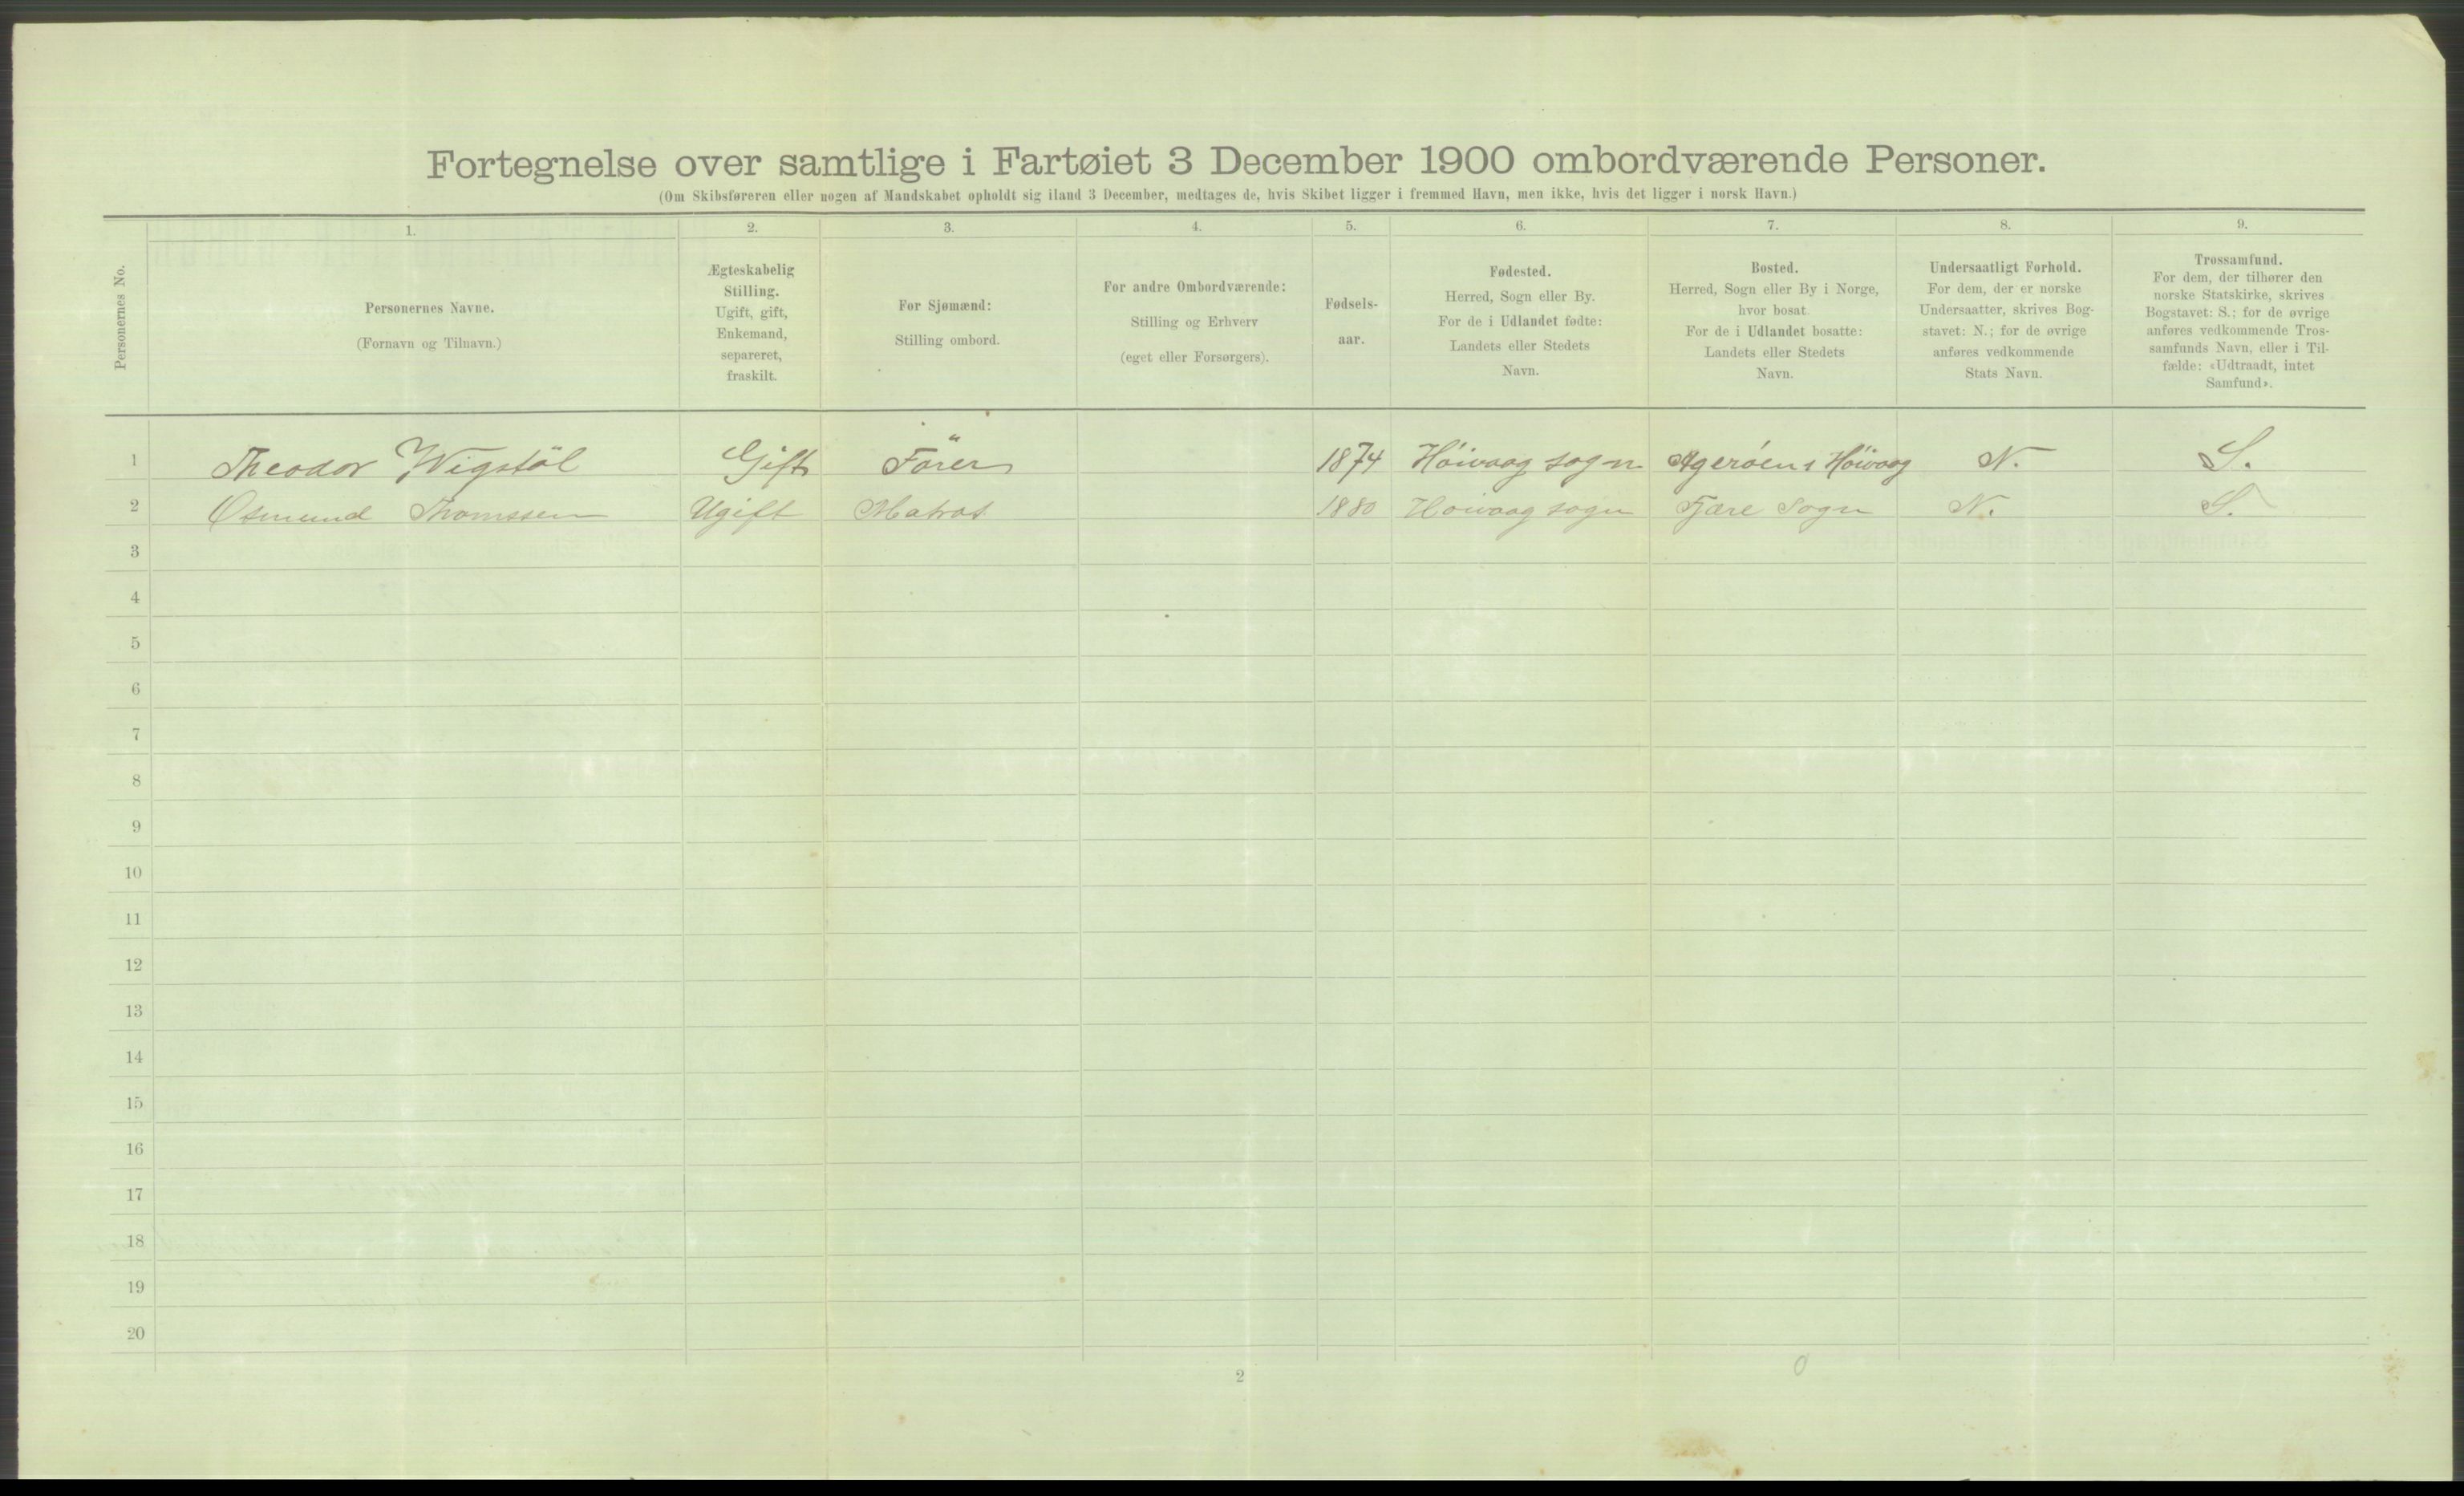 Fortegnelse over samtlige i Fartøiet 3 December 1900 ombordværende Personer.
(Om Skibsføreren eller nogen af Mandskabet opholdt sig iland 3 December, medtages de, hvis Skibet ligger i fremmed Havn, men ikke, hvis det ligger i norsk Havn.)
Personernes No.
1. 2. 3. 4. 5. 6. 7. 8. 9.
Personernes Navne.
(Fornavn og Tilnavn.)
Ægteskabelig
Stilling.
Ugift, gift,
Enkemand,
separeret,
fraskilt.
For Sjømænd:
Stilling ombord.
For andre Ombordværende:
Stilling og Erhverv
(eget eller Forsørgers).
Fødsels-
aar.
Fødested.
Herred, Sogn eller By.
For de i Udlandet fødte:
Landets eller Stedets
Navn.
Bosted.
Herred, Sogn eller By i Norge,
hvor bosat.
For de i Udlandet bosatte:
Landets eller Stedets
Navn.
Undersaatligt Forhold.
For dem, der er norske
Undersaatter, skrives Bog-
stavet: N.; for de øvrige
anføres vedkommende
Stats Navn.
Trossamfund.
For dem, der tilhører den
norske Statskirke, skrives
Bogstavet: S.; for de øvrige
anføres vedkommende Tros-
samfunds Navn, eller i Til-
fælde: «Udtraadt, intet
Samfund».
1 Theodor Wigstöl Gift Förer 1874 Höivaag sogn Agerøen i Höivaag N. S.
2 Osmund Thomssen Ugift Matros 1880 Hoivaag sogn Fjære Sogn N. S.
3
4
5
6
7
8
9
10
11
12
13
14
15
16
17
18
19
20
2
0